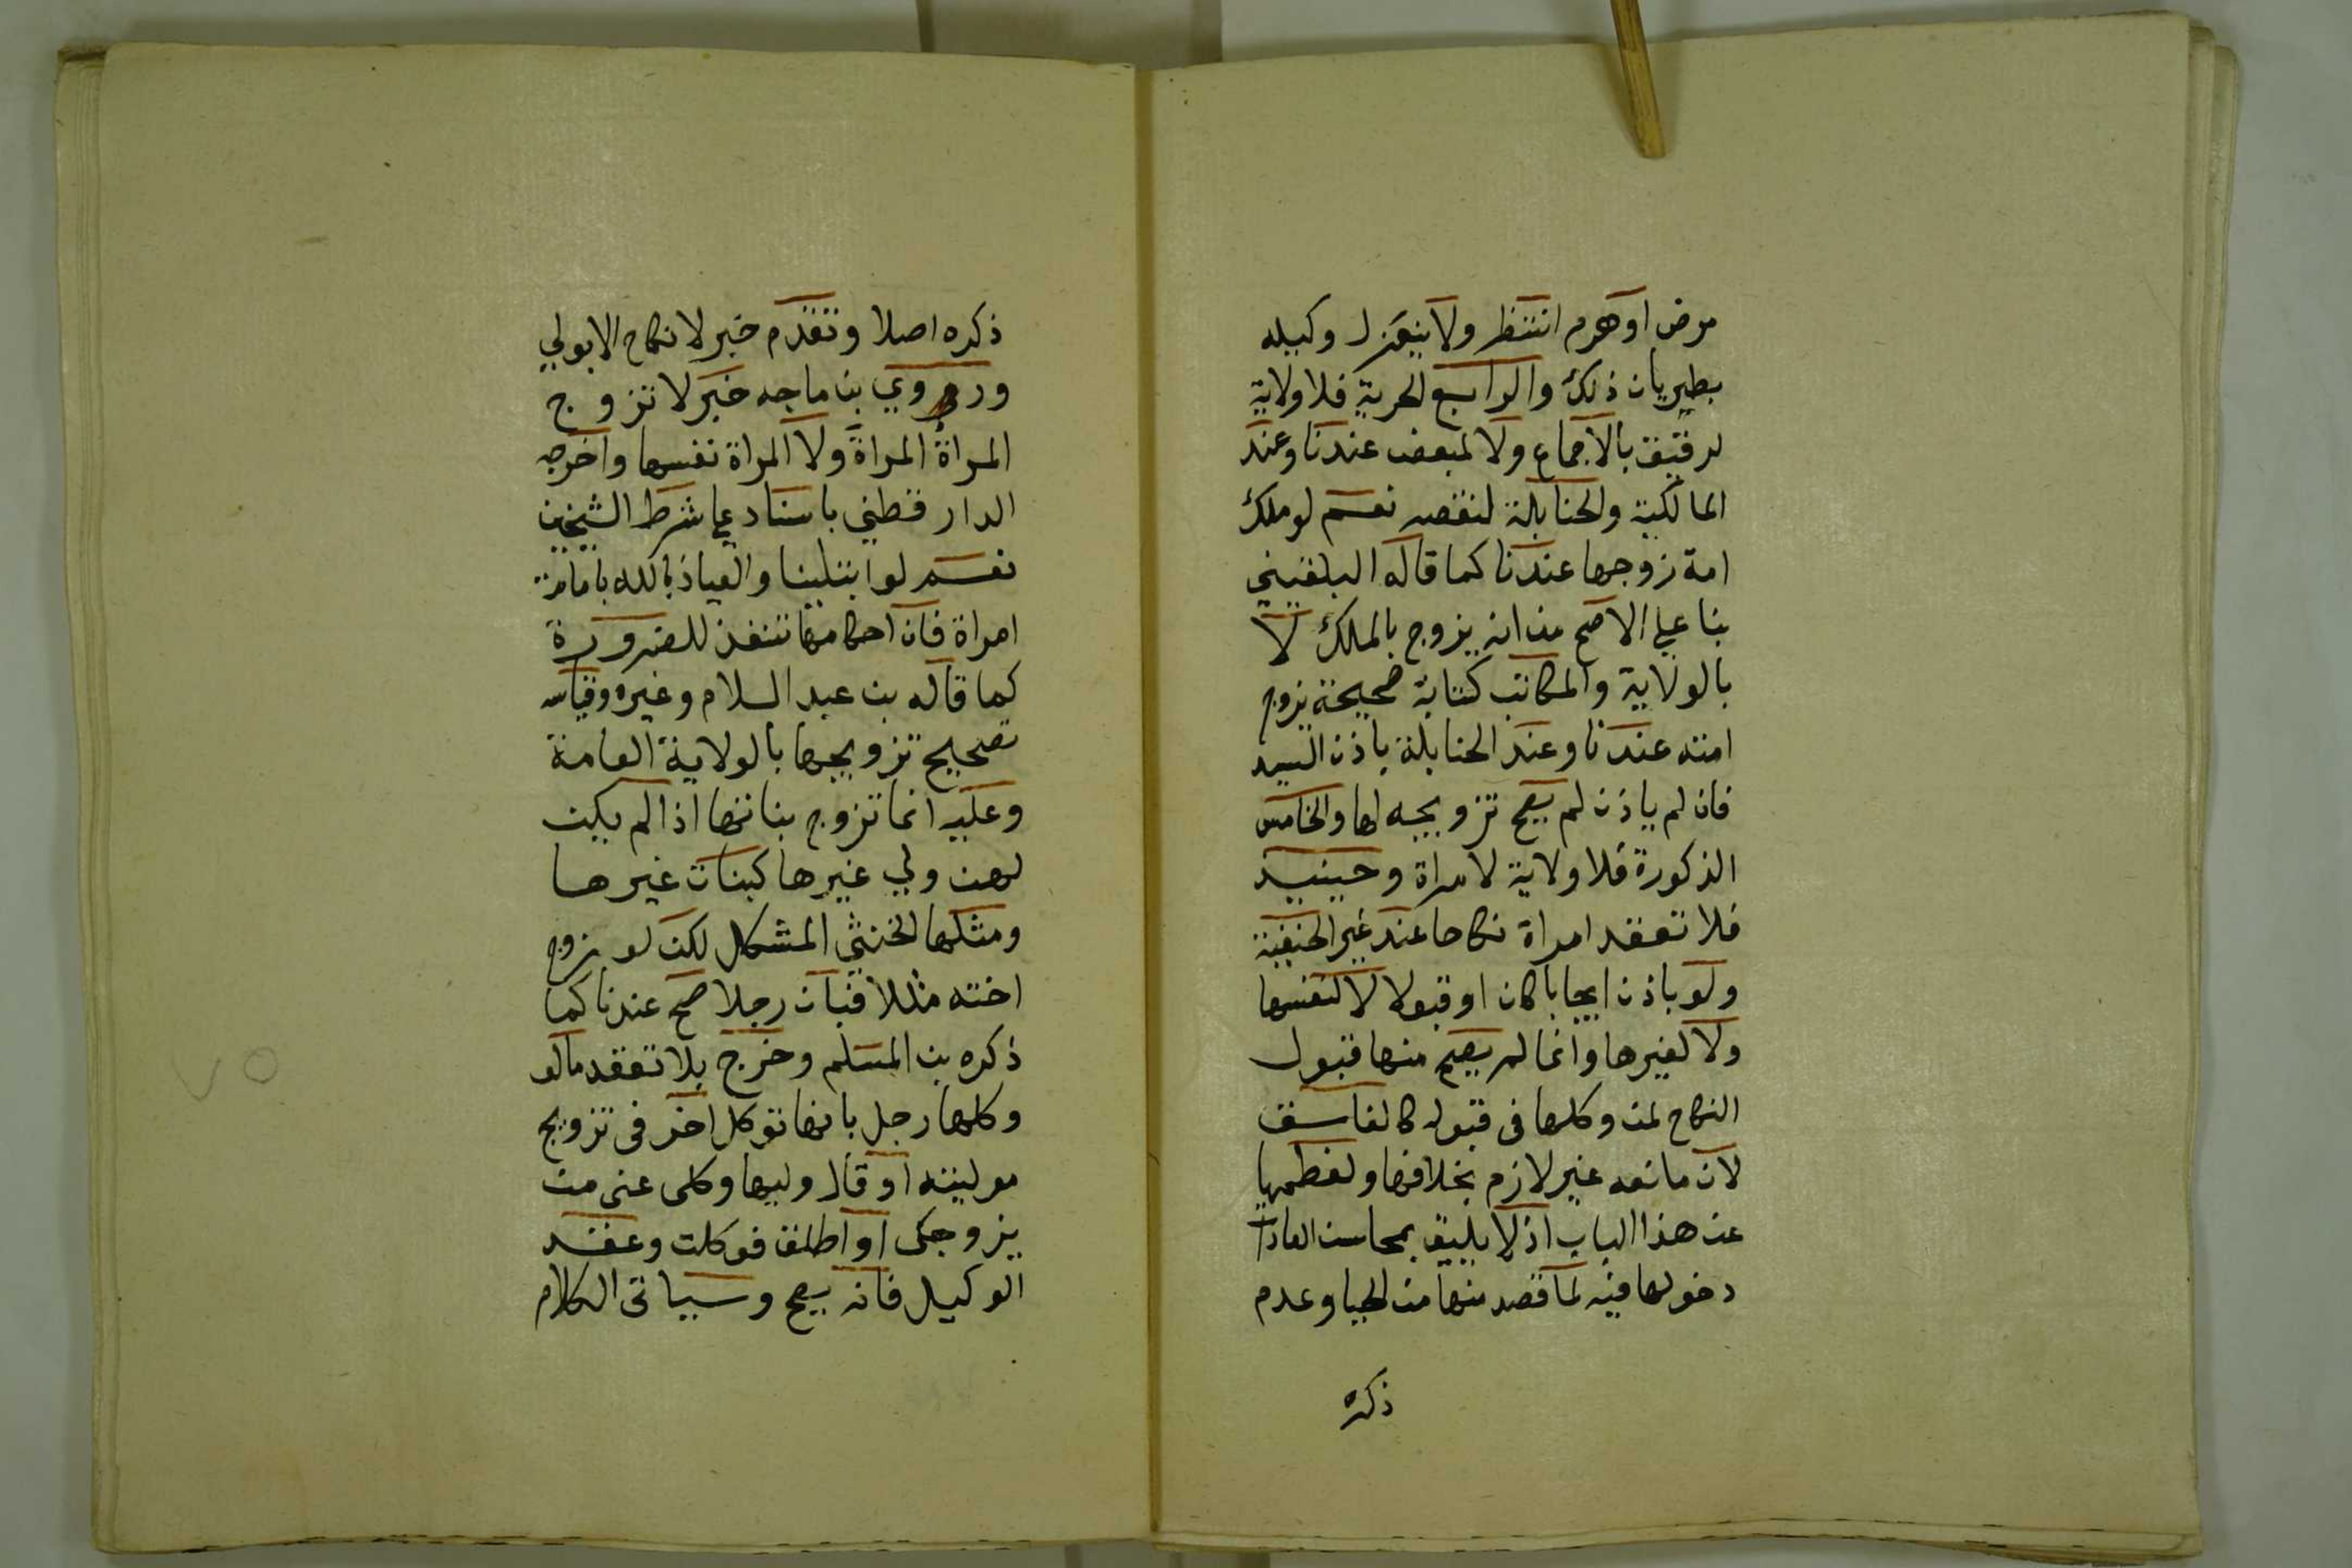 مرض او هرم انتظر ولا ينعزل وكيله
بطريان ذلك والرابع الحرية فلا ولاية
لرقيق بالاجماع ولا لمبعض عندنا وعند
المالكية والحنابلة لنقصه نعم لو ملك
امة زوجها عندنا كما قاله البلقيني
بنا علي الاصح من انه يزوج بالملك لا
بالولاية والمكاتب كتابة صحيحة يزوج
امته عندنا وعند الحنابلة باذن السيد
فان لم ياذن لم يصح تزويجه لها والخامس
الذكورة فلا ولاية لامراة وحينيد
فلا تعقد امراة نكاحا عند غير الحنفية
ولو باذن ايجابا كان او قبولا لا لنفسها
ولا لغيرها وانما لم يصح منها قبول
النكاح لمن وكلها فى قبوله كالفاسق
لان مانعه غير لازم بخلافها ولفطمها
عن هذا الباب اذ لا يليق بمحاسن العادات
دخولها فيه لما قصد منها من الحيا وعدم
ذكره
ذكره اصلا وتقدم خبر لا نكاح الا بولي
وروي بن ماجه خبر لا تزوج
المراةُ المراةَ ولا المراة نفسها واخرجه
الدار قطني باسناد علي شرط الشيخين
نعم لو ابتلينا والعياذ بالله بامامة
امراة فان احكامها تنفذ للضرورة
كما قاله بن عبد السلام وغيره وقياسه
تصحيح تزويجها بالولاية العامة
وعليه انما تزوج بناتها اذا لم يكن
لهن ولي غيرها كبنات غيرها
ومثلها الخنثي المشكل لكن لو زوج
اخته مثلا فبان رجلا صح عندنا كما
ذكره بن المسلم وخرج بلا تعقد ما لو
وكلها رجل بانها توكل اخر فى تزويج
موليته او قال وليها وكلى عنى من
يزوجكى او اطلق فوكلت وعقد
الوكيل فانه يصح وسياتى الكلام
٧٥